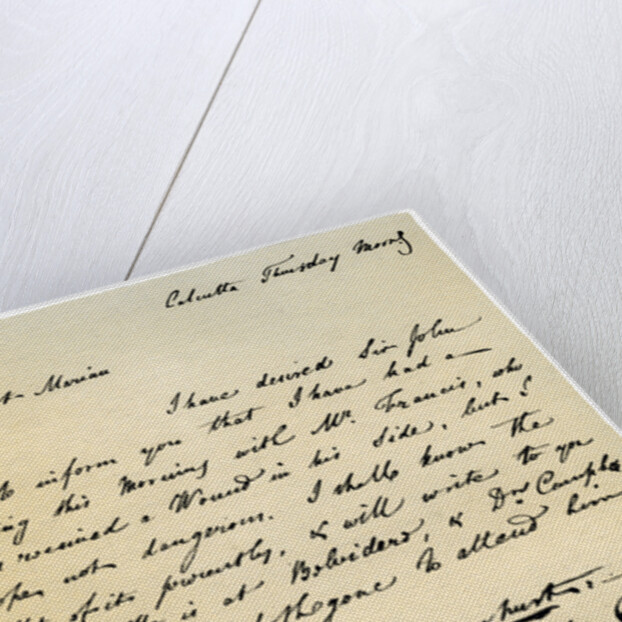 Calcutta Thursday Morng
st Marian I have desired Sir John
to inform you that I have had a
ing this Morning with Mr. Francis, who
received a Wound in his Side, but I
not dangerous. I shall know the
of it presently, & will write to you
is at Belvidere, & Drs Campbe
gone to attend him